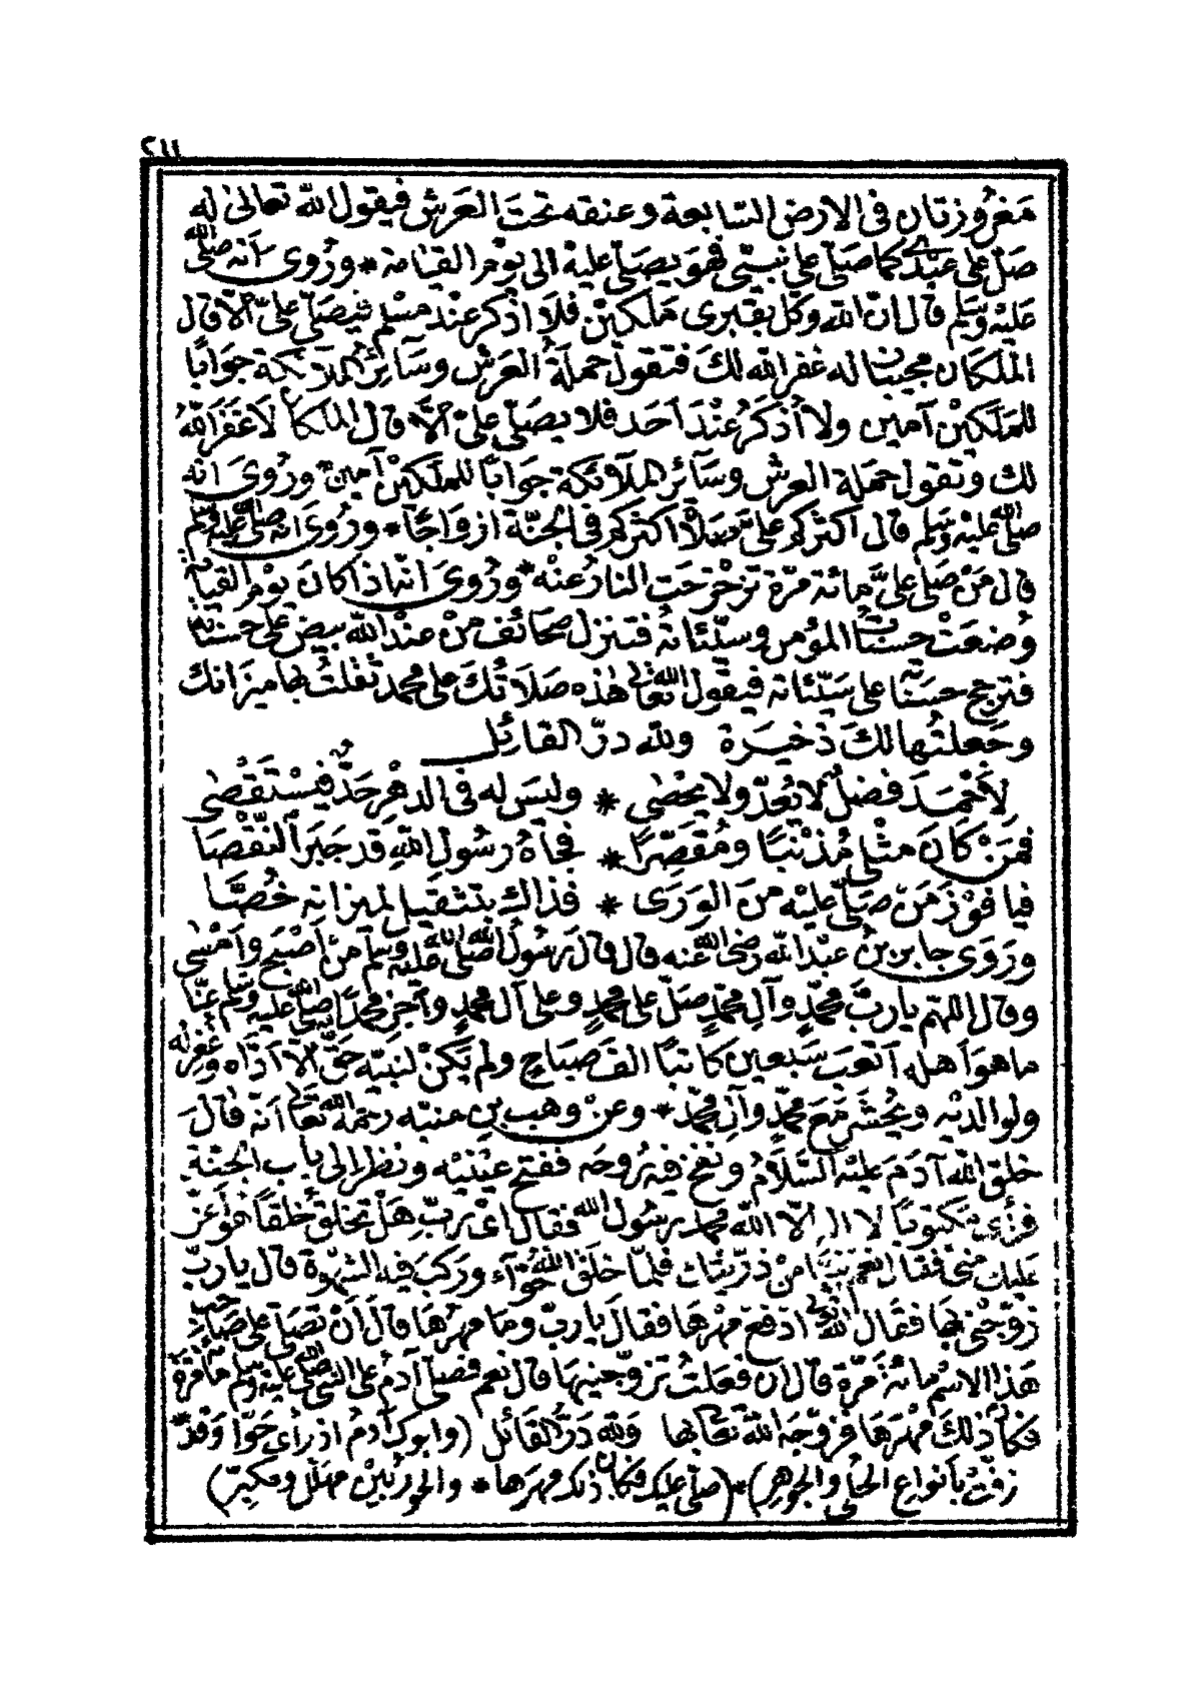 ٢١١
مَغرُوزتان فى الارض السّابعة وعنقه تحتَ العَرش فيقول الله تعالىٰ له
صَلّ على عَبْدى كما صَلّى على نبيّى فهوَ يصَلّى عليهْ الى يوْم القيامة * ورُوىَ انه صلى الله
عَليْه وَسَلم قال انّ الله وكّل بقبرى مَلكيْن فلاَ اُذكرعنْد مسْلم فيصَلّى علىّ الاّ قال
الملكان مجيبان له غفر الله لكَ فتقول حملةُ العَرش وسَائرُ الملائكة جوَابًا
للمَلكيْن آمين ولا اُذكَرُ عنْدَ اَحَد فلا يصَلّى علىّ الاّ قال الملكان لاَ غفرَ اللهُ
لك وتقول حمَلة العرش وسَآئر الملآئكة جوَابًا للملَكيْن آمين * ورُوىَ انه
صلى الله عليْه وَسَلم قال اكثركم علىّ صَلاةً اكثركم فى الجنّة ازوَاجًا * ورُوىَ انه صلى الله عليه وسلم
قال مَنْ صَلى علىَّ مائة مرّة تزحْزحَت النارُ عنْه * ورُوىَ انّه اذا كانَ يوْم القيامة
وُضعَتْ حسنَاتُ المؤمن وسيّئاته فتنزل صحَائف منْ عنْد الله بيض على حسنَاته
فترجح حسَنَاته على سَيّئاته فيقول الله تعالى هٰذه صَلاَتُكَ على محمد ثقلتُ بها ميزانك
وجَعلتُها لكَ ذخيرَة ولله درّ القائل
لاَحْمَدَ فضلٌ لاَ يُعَدّ ولا يُحْصٰى * وليسَ له فى الدهْرِ حَدٌّ فيُسْتَقْصٰى
فمَنْ كَانَ مثْلى مُذْنبًا ومُقَصِّرًا * فجاهُ رسُولِ اللهِ قد جَبَرَ النّقْصَا
فيا فوْزَ مَنْ صَلّى عليْه منَ الوَرَى * فذاك بتثقيل لميزانه خُصَّا
ورَوَى جابر بنُ عبْد الله رضى الله عنه قال قال رَسُولُ الله صَلى الله عليْه وسلم منْ اَصْبَحَ وَاَمْسٰى
وقال اللهم يا ربَّ محمَّدٍ وآلِ محمّدٍ صَلّ على محمدٍ وعلى آل محمدٍ وآجْزِ محمدًا صلى الله عليْه وسلم عنَّا
ما هوَ اَهله اَتعَبَ سَبعين كاتبًا الفَ صَبَاحٍ ولم يَكنْ لنبيّه حَقٌّ الاّ اَدّاه وغُفرَ له
ولوالديْه ويُحْشَر مَعَ محمّدٍ وآلِ محمّد * وعنْ وهْب بن منبّه رحمَهُ الله تعالى اَنّهُ قالَ
خلقَ اللهُ آدَمَ عليْه السَّلاَمُ ونفخَ فيه رُوحَه ففتحَ عيْنَيْه ونظرَ الى باب الجنّة
فرأى مَكتوبًا لا اله الاّ الله محمدٌ رسُول الله فقالَ اىْ ربّ هَلْ تخلقُ خلقًا هوَ اَعَزّ
عليك منّى فقال نعمْ نبيًّا منْ ذرّيّتك فلمّا خلقَ اللهُ حَوّآءَ وركّبَ فيه الشّهْوة قال ياربّ
زوّجْنى بها فقال الله تعالى ادفعْ مهْرهَا فقالَ ياربّ وما مهرُهَا قال اَنْ تصَلّىَ على صَاحِب
هَذا الاسْم مائةَ مَرّة قال ان فعَلتُ تزوّجنيهَا قال نعم فصَلى آدمُ على النّبىّ صلى الله عليْه وسلم مائة مرّة
فكانَ ذلكَ مهْرَهَا فزوّجَهُ اللهُ تعالى بها وَلله دَرّ القائل (وابوكَ آدمُ اذ رأى حَوّا وَقدْ *
زفّتْ بأنواع الحُلى والجوهرِ) * (صلّى عليك فكان ذلك مهرَها * والحورُ بيْن مهَلّل ومكبّرِ)